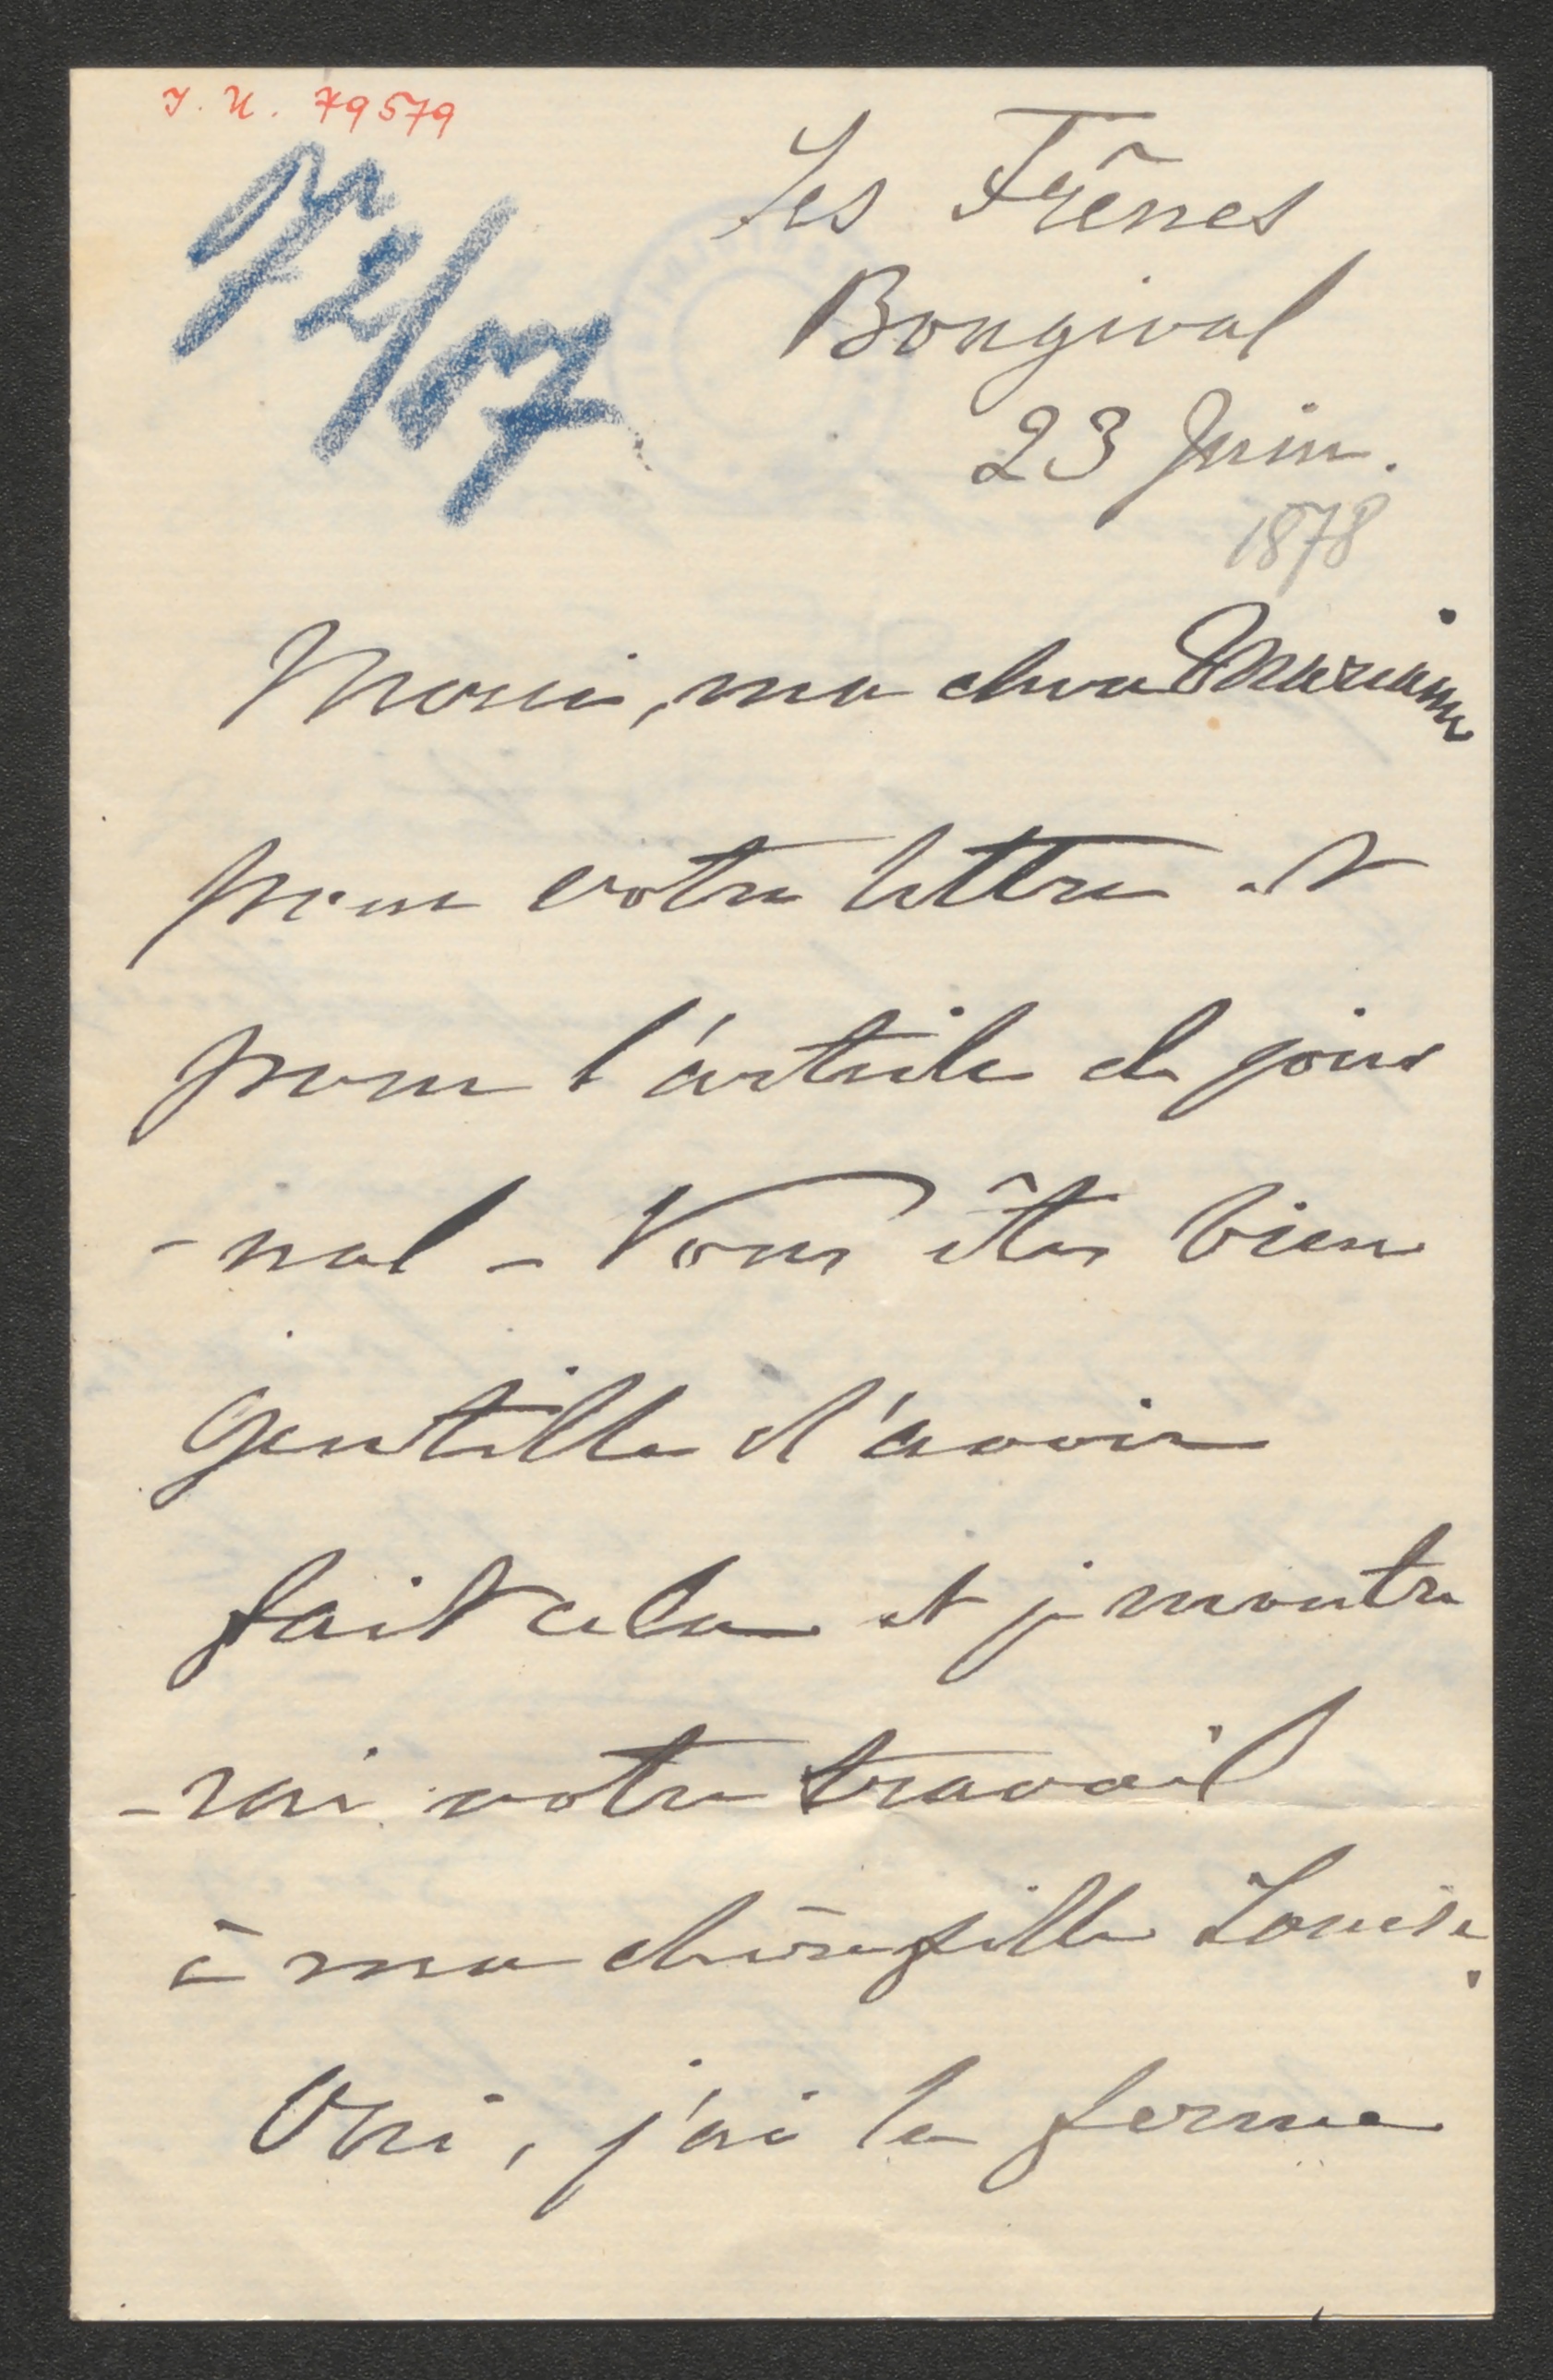 J. N. 79579
72/17
Les Frênes
Bougival
23 Juin.
1878
Merci, ma chère Marianne
pour votre lettre et
pour l'article de jour
-nal - Vous êtes bien
gentille d'avoir
fait cela et je montre
-rai votre travail
à ma chère fille Louise.
Oui, j'ai la ferme